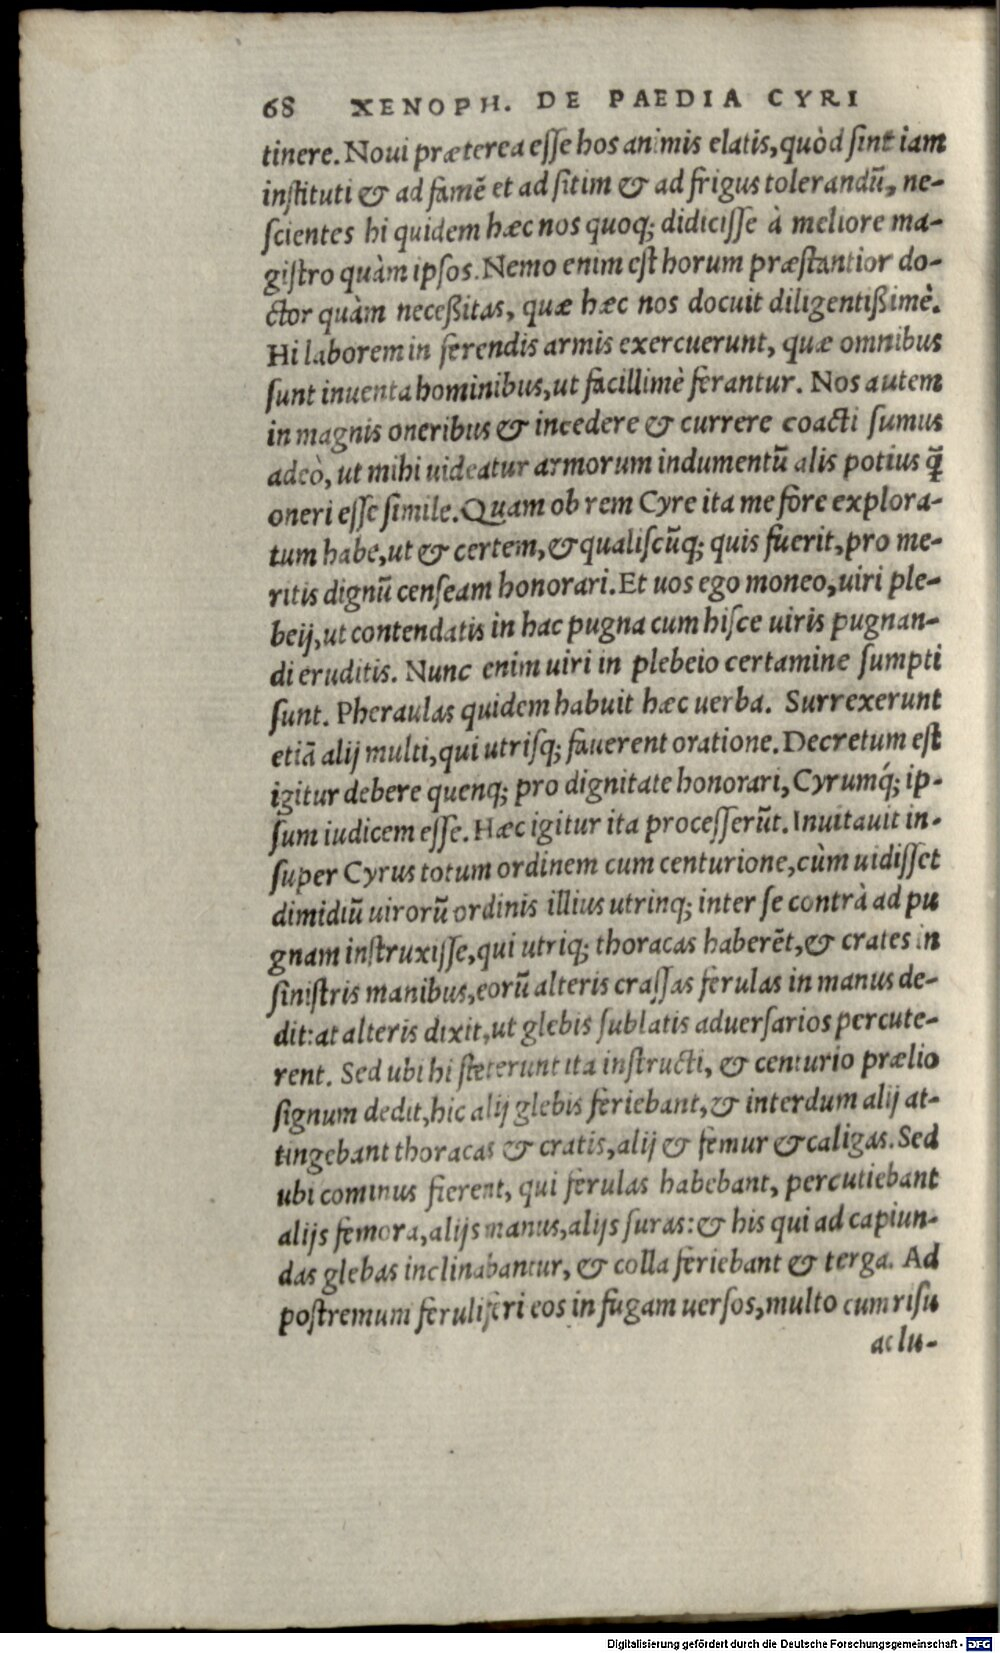 68 XENOPH. DE PAEDIA CYRI
tinere. Noui præterea esse hos animis elatis, quòd sint iam
instituti & ad famē et ad sitim & ad frigus tolerandū, ne-
scientes hi quidem hæc nos quoq; didicisse à meliore ma-
gistro quàm ipsos. Nemo enim est horum præstantior do-
ctor quàm necessitas, quæ hæc nos docuit diligentissimè.
Hi laborem in ferendis armis exercuerunt, quæ omnibus
sunt inuenta hominibus, ut facillimè ferantur. Nos autem
in magnis oneribus & incedere & currere coacti sumus
adeò, ut mihi uideatur armorum indumentū alis potius q̄
oneri esse simile. Quam ob rem Cyre ita me fore explora-
tum habe, ut & certem, & qualiscūq; quis fuerit, pro me-
ritis dignū censeam honorari. Et uos ego moneo, uiri ple-
beij, ut contendatis in hac pugna cum hisce uiris pugnan-
di eruditis. Nunc enim uiri in plebeio certamine sumpti
sunt. Pheraulas quidem habuit hæc uerba. Surrexerunt
etiā alij multi, qui utrisq; fauerent oratione. Decretum est
igitur debere quenq; pro dignitate honorari, Cyrumq́; ip-
sum iudicem esse. Hæc igitur ita processerūt. Inuitauit in-
super Cyrus totum ordinem cum centurione, cùm uidisset
dimidiū uirorū ordinis illius utrinq; inter se contrà ad pu
gnam instruxisse, qui utriq; thoracas haberēt, & crates in
sinistris manibus, eorū alteris crassas ferulas in manus de-
dit: at alteris dixit, ut glebis sublatis aduersarios percute-
rent. Sed ubi hi steterunt ita instructi, & centurio prælio
signum dedit, hic alij glebis feriebant, & interdum alij at-
tingebant thoracas & cratis, alij & femur & caligas. Sed
ubi cominus fierent, qui ferulas habebant, percutiebant
alijs femora, alijs manus, alijs suras: & his qui ad capiun-
das glebas inclinabantur, & colla feriebant & terga. Ad
postremum feruliferi eos in fugam uersos, multo cum risu
ac lu-
Digitalisierung gefördert durch die Deutsche Forschungsgemeinschaft - DFG